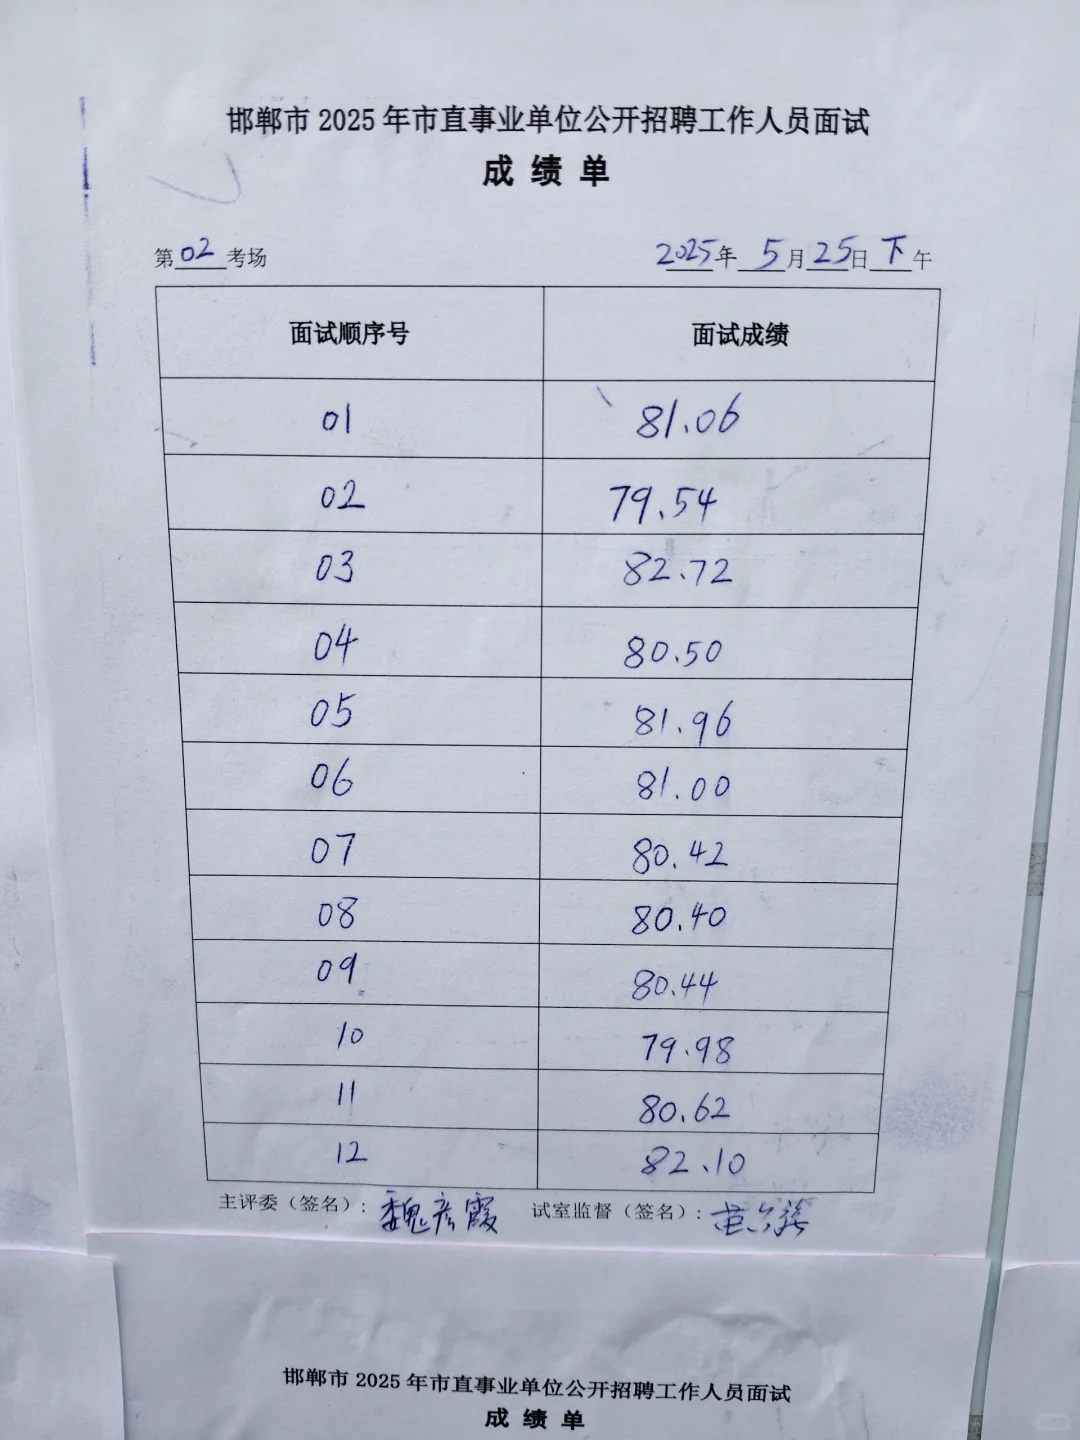 邯郸市 2025 年市直事业单位公开招聘工作人员面试
成 绩 单
第 02 考场 2025年 5 月 25 日 下 午
面试顺序号 面试成绩
01 81.06
02 79.54
03 82.72
04 80.50
05 81.96
06 81.00
07 80.42
08 80.40
09 80.44
10 79.98
11 80.62
12 82.10
主评委（签名）: 魏彦霞 试室监督（签名）:
邯郸市 2025 年市直事业单位公开招聘工作人员面试
成 绩 单